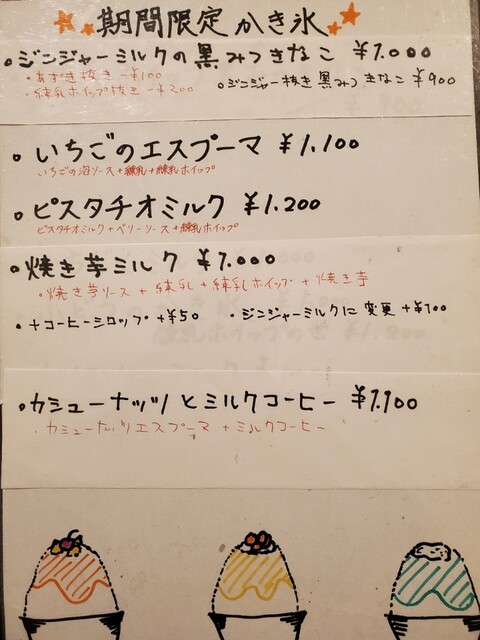 期間限定 かき氷
・ジンジャーミルクの黒みつきなこ ¥1.000
・あずき抜き -¥100
・練乳ホイップ抜き -¥200
・ジンジャー抜き 黒みつ きなこ ¥900
・いちごのエスプーマ ¥1.100
いちごの泡ソース+練乳+練乳ホイップ
・ピスタチオミルク ¥1.200
ピスタチオミルク+ベリーソース+練乳ホイップ
・焼き芋ミルク ¥1.000
・焼き芋ソース + 練乳 + 練乳ホイップ + 焼き芋
・+コーヒーシロップ +¥50
・ジンジャーミルクに変更 +¥100
・カシューナッツとミルクコーヒー ¥1.100
・カシューナッツエスプーマ + ミルクコーヒー